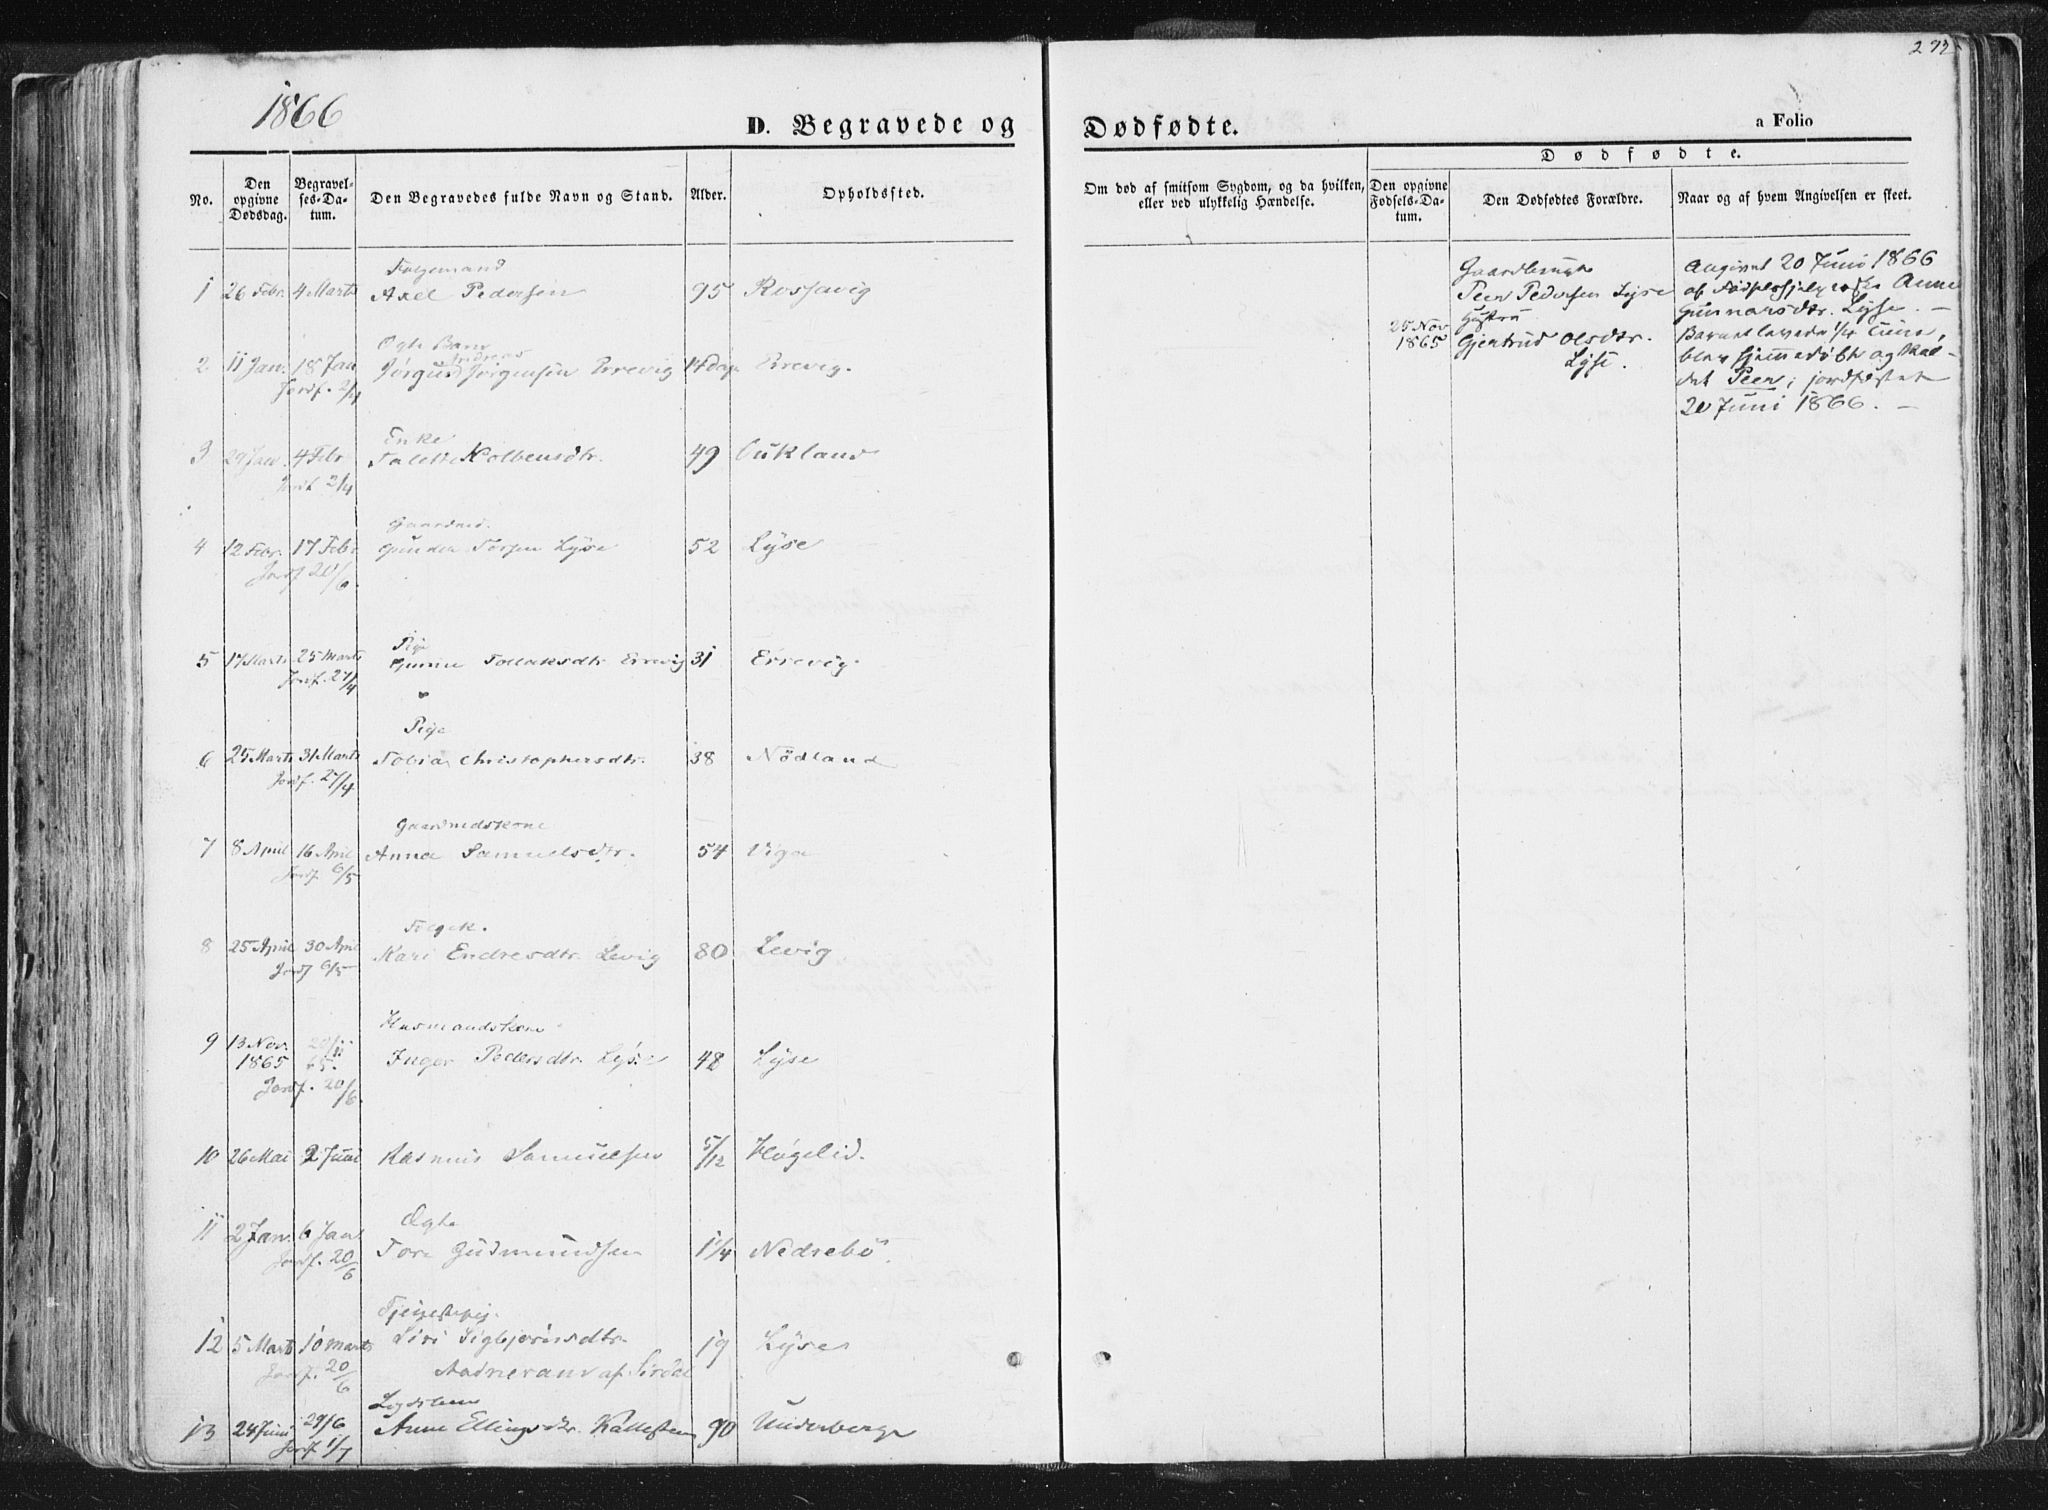 273
1866
D. Begravede og Dødfødte.
a Folio
No.
Den opgivne Dødsdag.
Begravelses-Datum.
Den Begravedes fulde Navn og Stand.
Alder.
Opholdssted.
Om død af smitsom Sygdom, og da hvilken, eller ved ulykkelig Hændelse.
Dødfødte.
Den opgivne Fødsels-Datum.
Den Dødfødtes Forældre.
Naar og af hvem Angivelsen er skeet.
Folgemand
1 26 Febr. 4 Marts Axel Pedersen 95 Rossavig
Ægte Barn
Andreas
2 11 Jan. 18 Jan Jørgensen Errevig 14 dag Errevig.
Jordf. 2/4
Enke
3 29 Jan. 4 Febr Kolbensdtr. 49 Oukland
Jordf 2/4
Gaardmd.
4 12 Febr. 17 Febr Lyse 52 Lyse
Jordf 20/6
Pige
5 17 Marts 25 Marts Gunne Tollaksdtr Errevig 31 Errevig.
Jordf. 27/4
Pige
6 25 Marts 31 Marts Tobia Christophersdtr. 38 Nödland
Jordf. 27/4
Gaardmdskone
7 8 April 16 April Anna Samuelsdtr. 54 Viga
Jordf 6/5
Folgek.
8 25 April 30 April Kari Endresdtr. Levig 80 Levig
Jordf 6/5
Husmandskone
9 13 Nov. 1865 20/11 65. Inger Pedersdtr. Lyse 48 Lyse
Jordf. 20/6
10 26 Mai 2 Juni Rasmus Samuelsen 5/12 Högelid.
Ægte
11 2 Jan. 6 Jan Tore Gudmundsen 1 1/4 Nedrebö
Jordf. 20/6
12 5 Marts 10 marts Siri Sigbjörnsdtr. 19 Lyse
Jordf. 20/6 af Sirdal
13 24 Juni 29/6 Anne Ellingsdtr. Kallesten 90 Underberge
Jordf 1/7
25 Nov 1865
Gaardbruger
Peer Pedersen Lyse
Hustru
Gjertrud Olsdtr.
Lyse.
Angivet 20 Juni 1866
af Anne
Gunnarsdtr. Lyse. —
Barnet levede 1/4 Time,
blev hjemmedöbt og kal-
det Peer; jordfæstet
20 Juni 1866. —